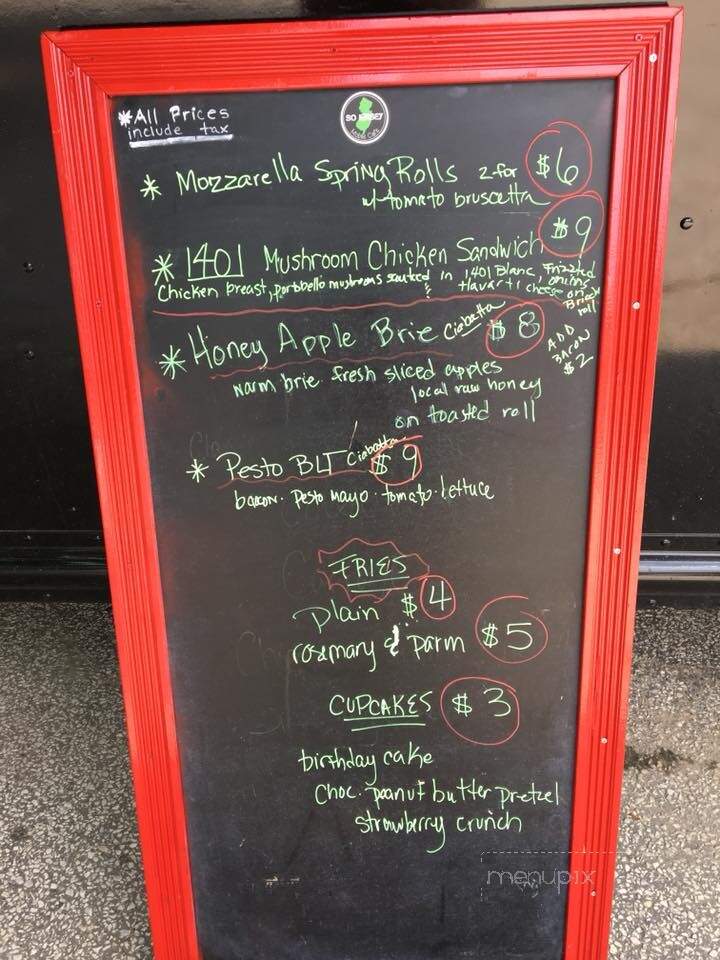 *All Prices
include tax
SO JERSEY
* Mozzarella Spring Rolls 2 for $6
w/ tomato bruscetta
* 1401 Mushroom Chicken Sandwich $9
Chicken breast, portobello mushrooms sauteed in 1401 Blanc, Frizzled
& Havarti cheese onions
on
Brioche
roll
* Honey Apple Brie Ciabatta $8
warm brie fresh sliced apples
local raw honey
on toasted roll
ADD
BACON
$2
* Pesto BLT Ciabatta $9
bacon · pesto mayo · tomato · lettuce
FRIES
plain $4
rosemary & parm $5
CUPCAKES $3
birthday cake
choc. peanut butter pretzel
strawberry crunch
menupix